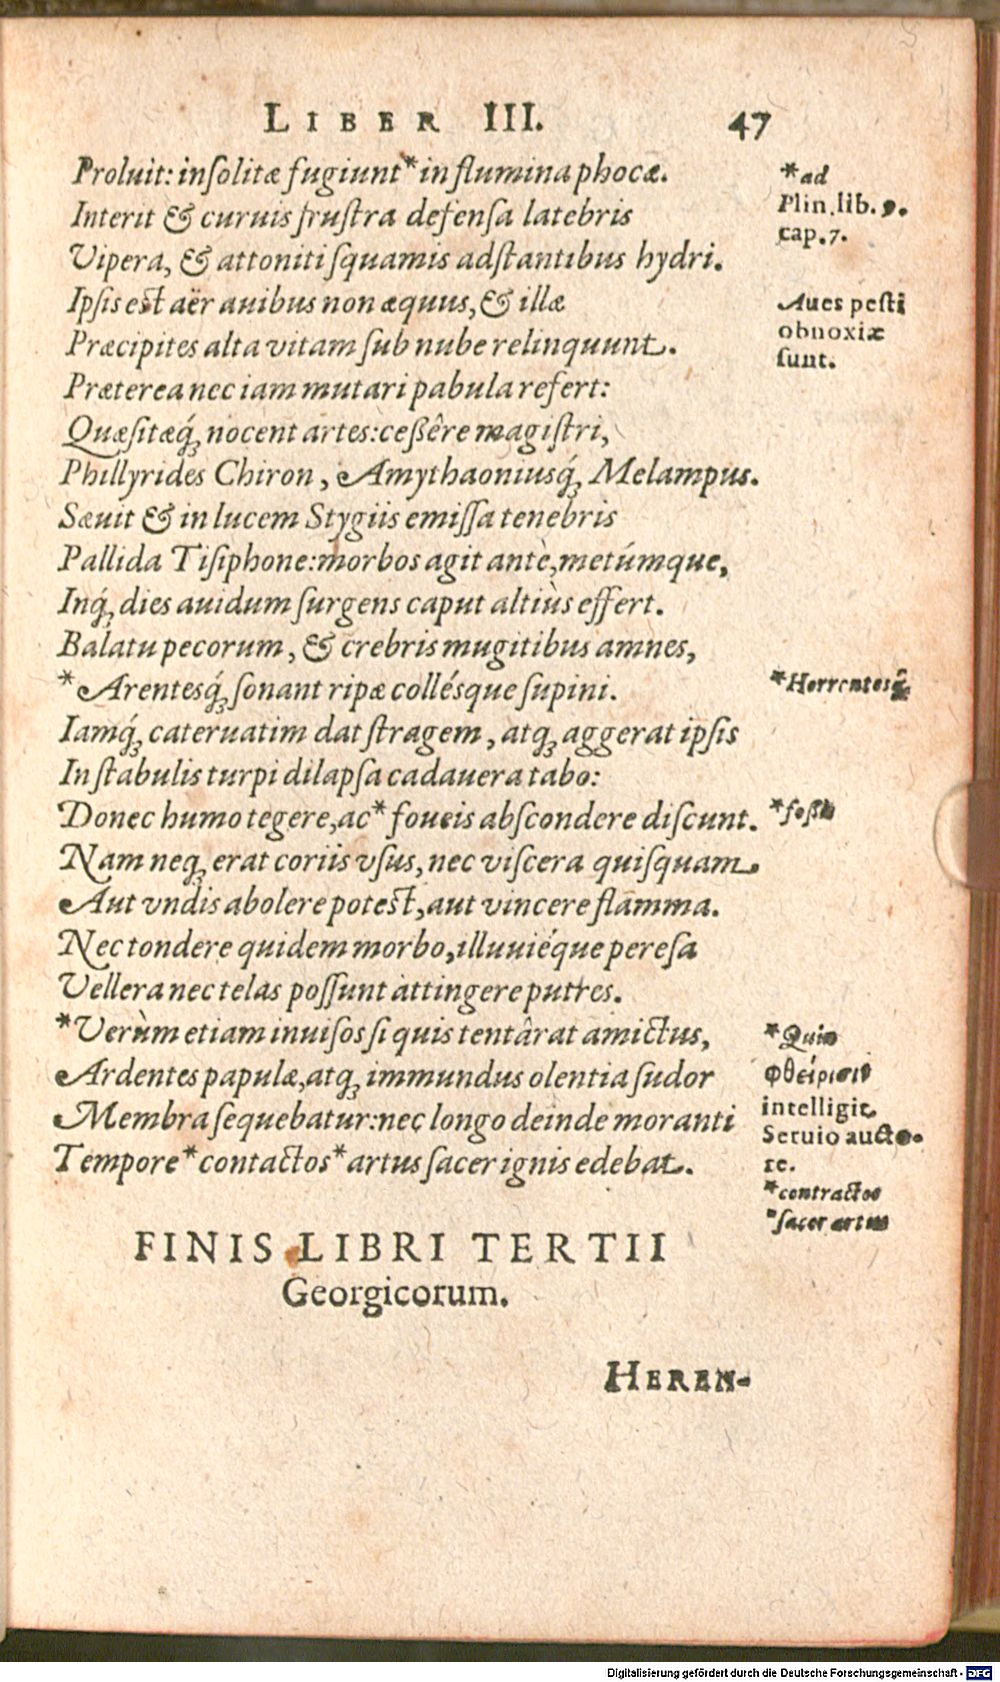 LIBER III. 47
Proluit: insolitæ fugiunt* in flumina phocæ.
Interit & curuis frustra defensa latebris
Vipera, & attoniti squamis adstantibus hydri.
Ipsis est aër auibus non æquus, & illæ
Præcipites alta vitam sub nube relinquunt.
Præterea nec iam mutari pabula refert:
Quæsitæq́; nocent artes: ceßêre magistri,
Phillyrides Chiron, Amythaoniusq́; Melampus.
Sæuit & in lucem Stygiis emissa tenebris
Pallida Tisiphone: morbos agit antè, metúmque,
Inq́; dies auidum surgens caput altiùs effert.
Balatu pecorum, & crebris mugitibus amnes,
*Arentesq́; sonant ripæ collésque supini.
Iamq́; cateruatim dat stragem, atq; aggerat ipsis
In stabulis turpi dilapsa cadauera tabo:
Donec humo tegere, ac* foueis abscondere discunt.
Nam neq; erat coriis vsus, nec viscera quisquam
Aut vndis abolere potest, aut vincere flamma.
Nec tondere quidem morbo, illuuiéque peresa
Vellera nec telas possunt attingere putres.
*Verùm etiam inuisos si quis tentârat amictus,
Ardentes papulæ, atq; immundus olentia sudor
Membra sequebatur: nec longo deinde moranti
Tempore* contactos* artus sacer ignis edebat.
*ad
Plin. lib. 9.
cap. 7.
Aues pesti
obnoxiæ
sunt.
*Horrentesq́;
*foßis
*Quin
φθείρισιν
intelligit
Seruio aucto-
re.
*contractos
*sacer artus
FINIS LIBRI TERTII
Georgicorum.
HEREN-
Digitalisierung gefördert durch die Deutsche Forschungsgemeinschaft - DFG